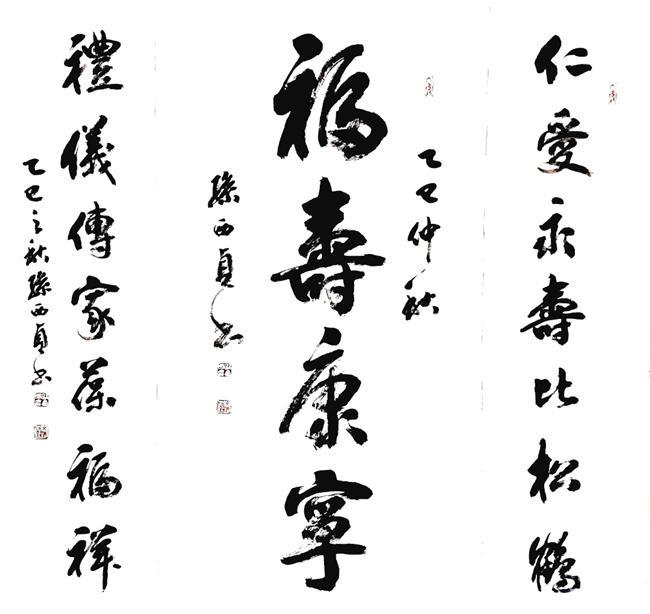 仁愛永壽比松鶴
乙巳仲秋
福壽康寧
孫西貞書
禮儀傳家葆福祥
乙巳之秋孫西貞書